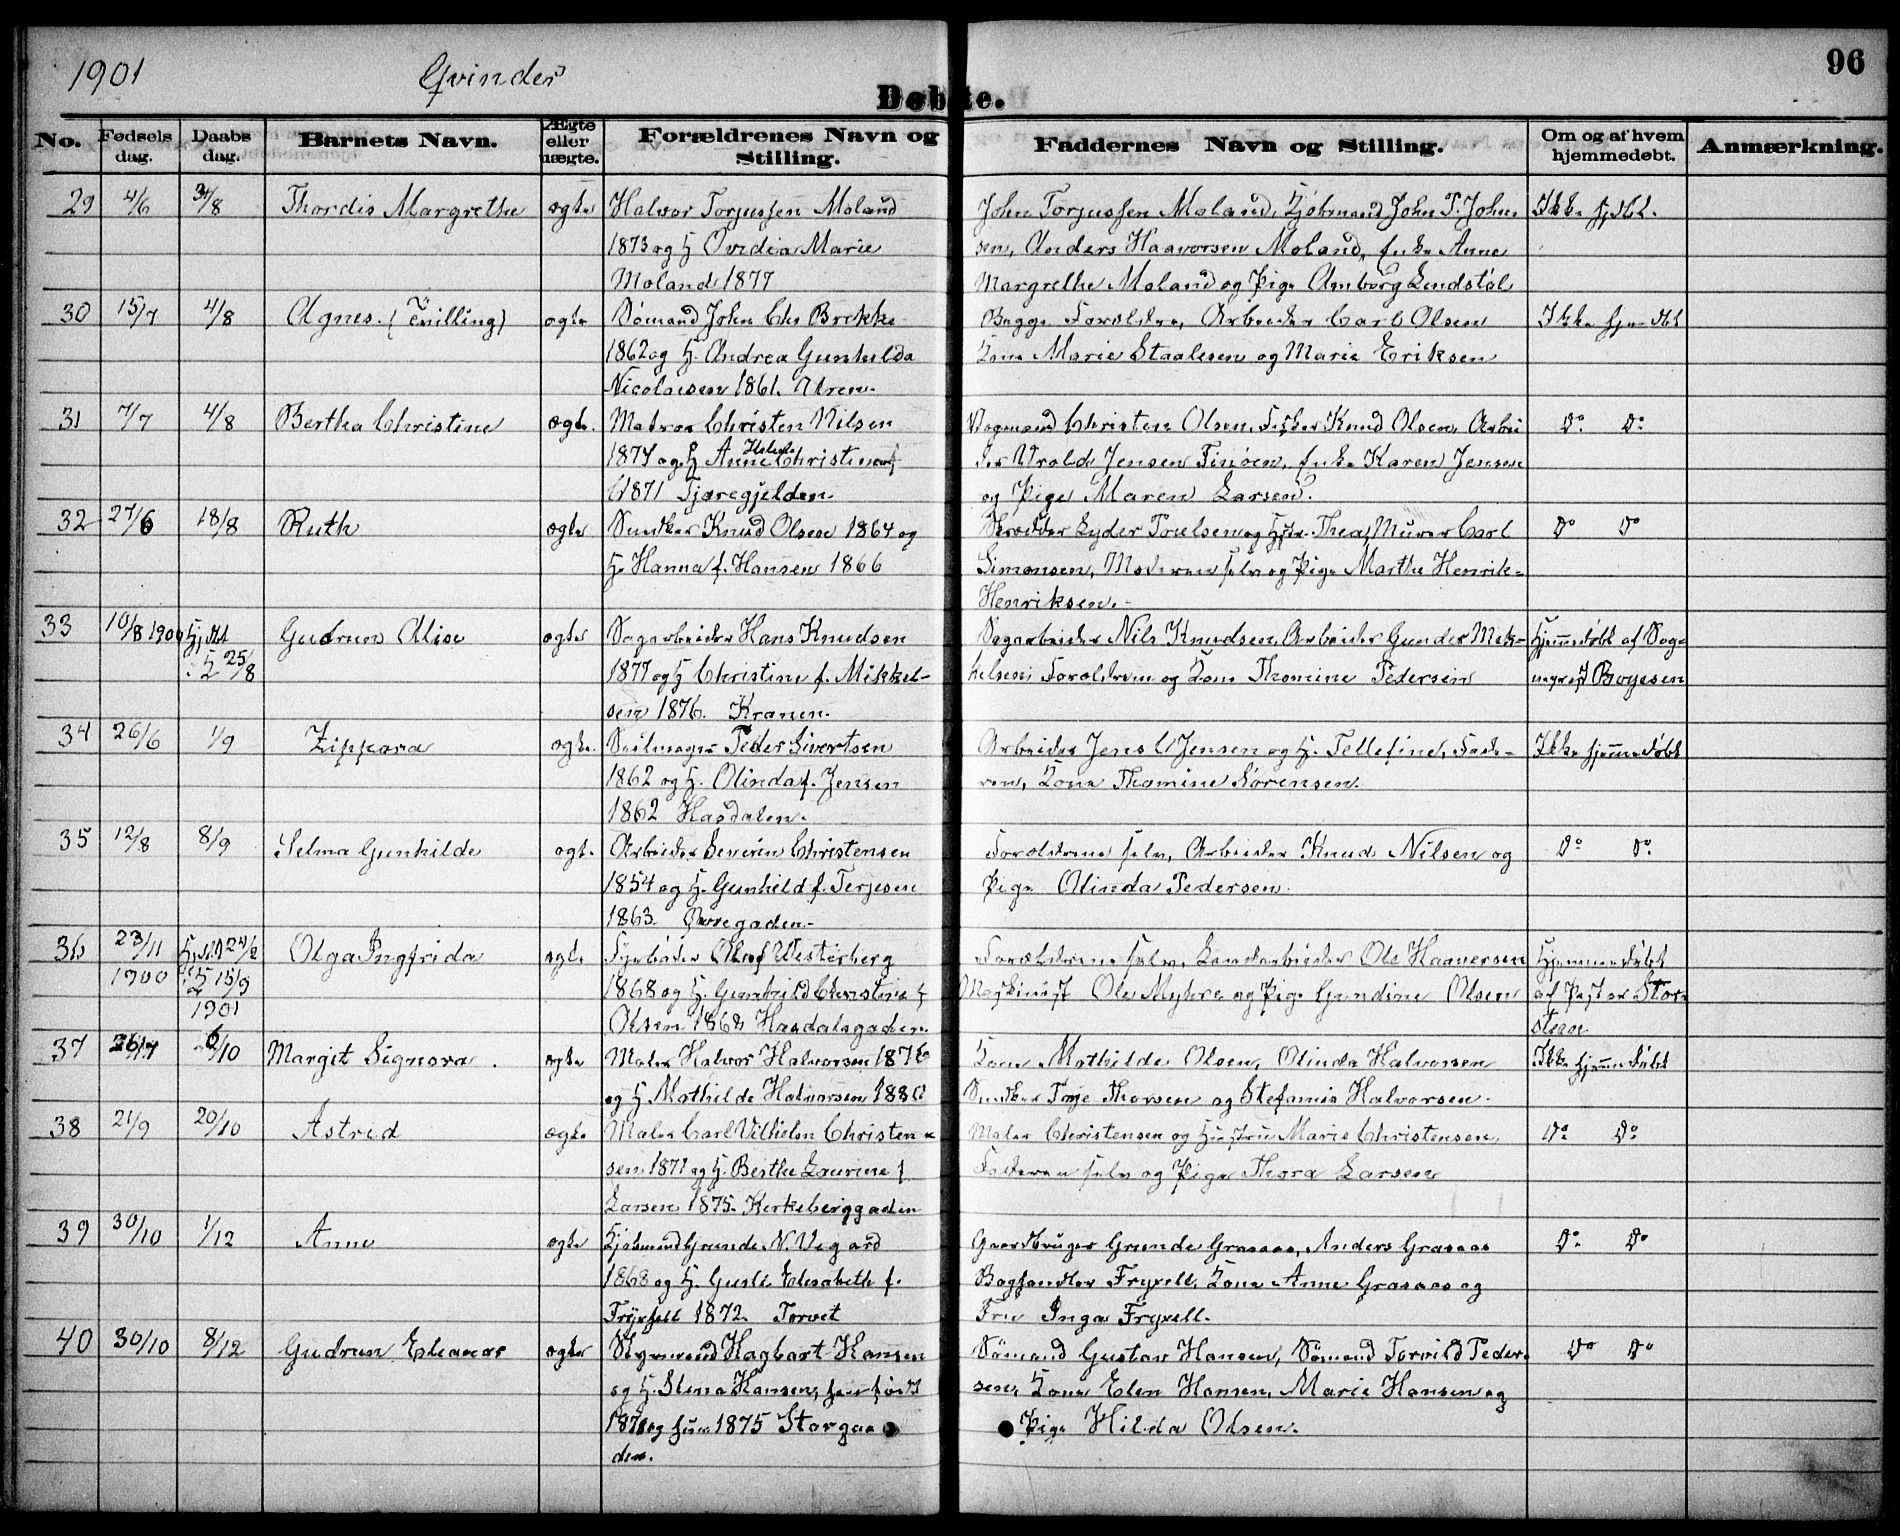 1901 Qvinder 96
Døbte.
No. Fødsels dag. Daabs dag. Barnets Navn. Ægte eller uægte. Forældrenes Navn og Stilling. Faddernes Navn og Stilling. Om og af hvem hjemmedøbt. Anmærkning.
29 4/6 /8 Thordis Margrethe ægte Halvor Torjussen Moland John Torjussen Moland, Kjøbmand John P. John- Ikke hjdbt.
1873 og H Ovidia Marie sen, Anders Haavorsen Moland, Enke Anne
Moland 1877 Margrethe Moland og Pige Lendstøl
30 15/7 4/8 Agnes. (Tvilling) ægte Sømand John Chr Brekke Begge Forældre, Arbeider Carl Olsen Ikke hjemdbt
1862 og H. Andrea Gunhilda Kone Marie Staalesen og Marie Eriksen
Nicolaisen 1861.
31 7/7 4/8 Bertha Christine ægte. Matros Christen Nilsen Vognmand Christen Olsen, Fisker Knud Olsen, Arbei Do Do
1874 og H Anne Helene Christine f der Jensen Enke Karen Jensen
1871 Tjæregjelden. og Pige Maren Larsen.
32 27/6 18/8 Ruth ægte Snedker Knud Olsen 1864 og Skrædder Lyder Poulsen og Hstr. Thea, Murer Carl Do Do
H. Hanna f. Hansen 1866 Simonsen, Moderen selv og Pige Marthe Henrik-
Henriksen.
33 10/8 1900 Hj dbt Gudrun Alise ægte Sagarbeider Hans Knudsen Sagarbeider Nils Knudsen, Arbeider Gunder Mik- Hjemmedøbt af Sog-
i K 25/8 1877 og H Christine f. Mikkel- kelsen, Forældrene og Kone Thomine Pedersen nepræst Boyesen
sen 1876. Kranen.
34 26/6 1/9 Zippora ægte. Seilmager Peder Sivertsen Arbeider Jens C Jensen og H. Tellefine, Fade- Ikke hjemmedøbt
1862 og H. Olinda f. Jensen ren, Kone Thomine Sørensen.
1862 Hasdalen.
35 12/8 8/9 Selma Gunhilde ægte. Arbeider Severin Christensen Forældrene selv, Arbeider Knud Nilsen og Do Do
1854 og H. Gunhild f. Terjesen Pige Olinda Pedersen.
1863. Øvregaden.
36 23/11 Hj dbt 24/2 Olga Ingfrida ægte Fyrbøder Oluf Westerberg Forældrene selv, Landarbeider Ole Haaversen Hjemmedøbt
1900 i K 15/9 1868 og H. Gunhild Christine f Maskinist Ole Myhre og Pige Gundine Olsen af Pastor Stor-
1901 Olsen 1868 Hasdalsgaden. steen
37 26/7 6/10 Margit Signora. ægte Maler Halvor Halvorsen 1876 Kone Mathilde Olsen, Olinda Halvorsen Ikke hjemmedøbt
og H Mathilde Halvorsen 1880 Snedker Terje Thorsen og Stefanie Halvorsen.
38 21/9 20/10 Astrid ægte Maler Carl Vilhelm Christen- Maler Christensen og Hustru Marie Christensen, Do Do
sen 1871 og H. Berthe Laurine f. Faderen selv og Pige Thora Larsen
Larsen 1875. Kirkeberggaden
39 30/10 1/12 Anne ægte Kjøbmand Grunde N. Vegard Gaardbruger Grunde Grasaas, Anders Grasaas Do Do
1868 og H. Gusli Elisabeth f. Boghandler Fryxell, Kone Anne Grasaas og
Fryxsell 1872. Torvet Fru Inga Fryxell.
40 30/10 8/12 Gudrun Eleanor ægte Styrmand Hagbart Hansen Sømand Gustav Hansen, Sømand Torvild Peder- Do Do
og H. Stena Hansen, han født sen, Kone Elen Hansen, Marie Hansen og
og hun 1875 Storgaa Pige Hilda Olsen.
den.